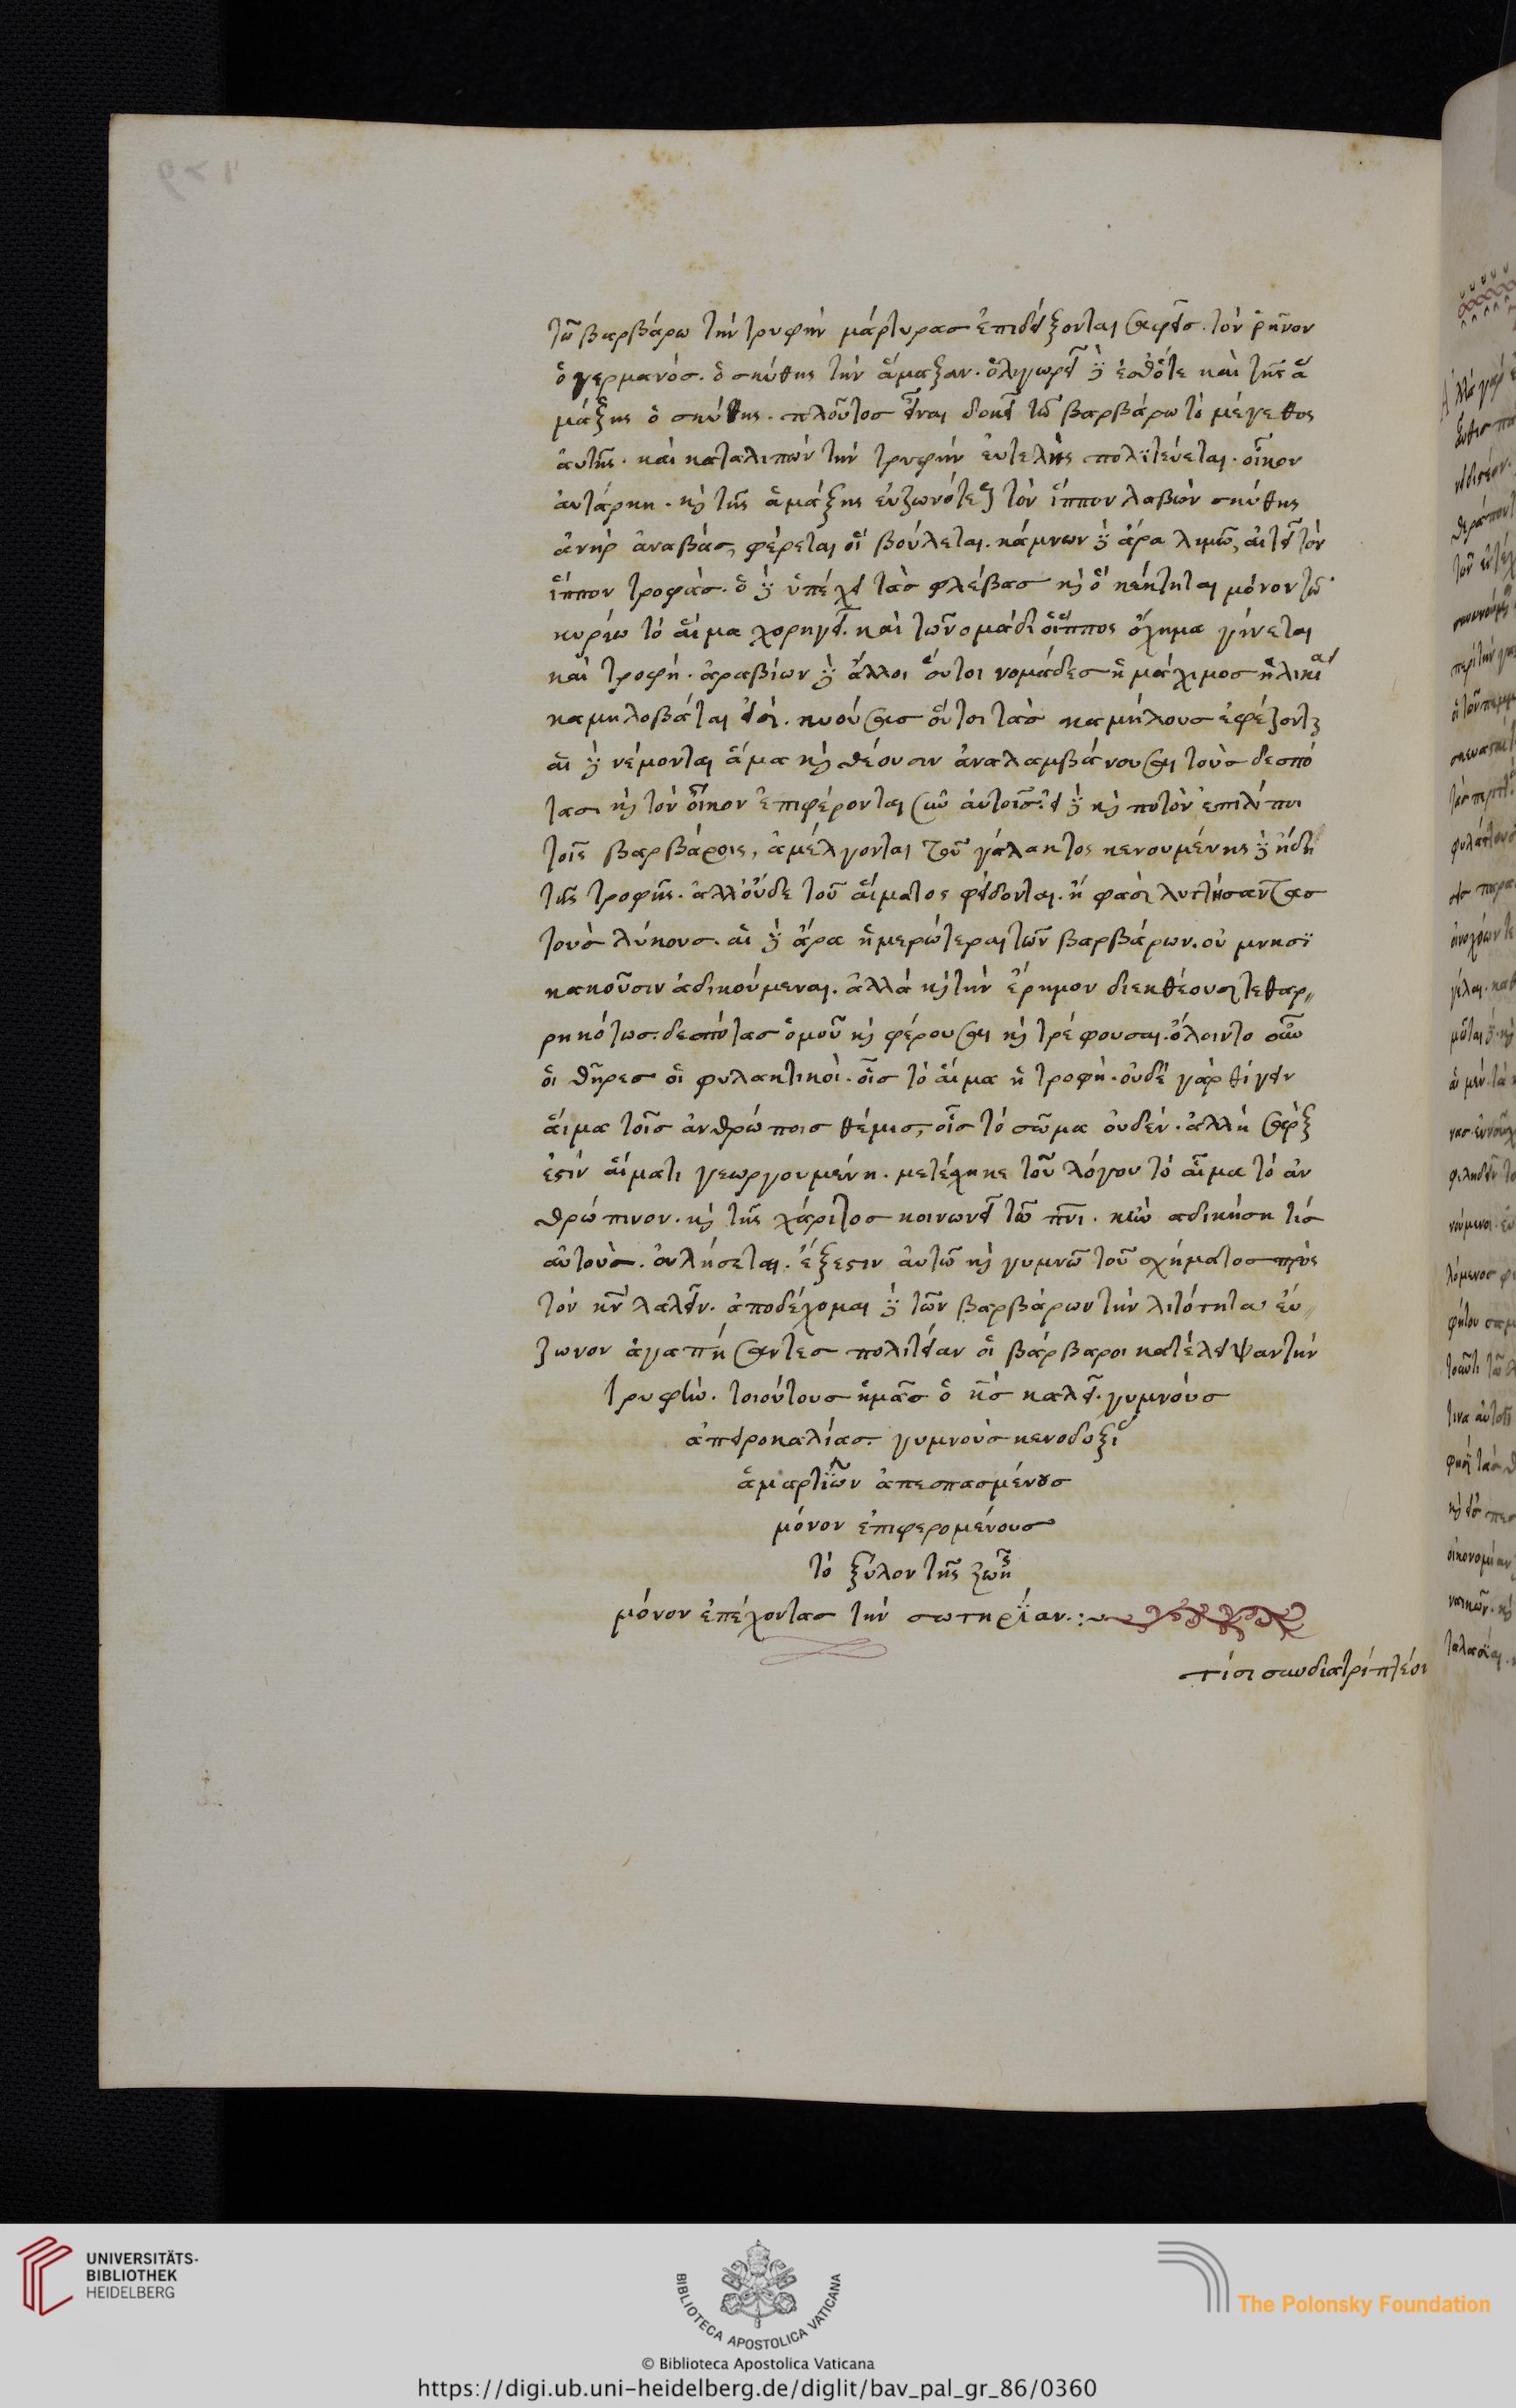 τῶ βαρβάρω τὴν τρυφὴν μάρτυρας ἐπιδείξονται σαφεῖς. τὸν ῥῆνον
ὁ γερμανός. ὁ σκύθης τὴν ἅμαξαν. ὀλιγωρεῖ δὲ ἐσθότε καὶ τῆς ἁ
μάξης ὁ σκύθης. πλοῦτος εἶναι δοκεῖ τῶ βαρβάρω τὸ μέγεθος
αὐτῆς. καὶ καταλιπὼν τὴν τρυφὴν εὐτελῶς πολϊτεύεται. οἶκον
αὐτάρκη. κ̀ τῆς ἁμάξης εὐζωνότερον τὸν ἵππον λαβὼν σκύθης
ἀνὴρ ἀναβὰς, φέρεται οἷ βούλεται. κάμνων δὲ ἄρα λιμῶ, αἰτεῖ τὸν
ἵππον τροφάς. ὁ δὲ ὑπέχει τὰς φλέβας κ̀ ὃ κέκτηται μόνον τῶ
κυρίω τὸ αἷμα χορηγεῖ. καὶ τῶ νομάδι ὁ ἵππος ὄχημα γίνεται
καὶ τροφή. ἀραβίων δὲ ἄλλοι οὗτοι νομάδες ἡ μάχιμος ἡλικία
καμηλοβάται εἰσί. κυούσαις οὗτοι τὰς καμήλους ἐφέζονται
αἳ δὲ νέμονται ἅμα κ̀ θέουσιν ἀναλαμβάνουσαι τοὺς δεσπό
τας κ̀ τὸν οἶκον ἐπιφέρονται σὺν αὐτοῖς. εἰ δὲ κ̀ ποτὸν ἐπιλίποι
τοῖς βαρβάροις, ἀμέλγονται τοῦ γάλακτος κενουμένης δὲ ἤδη
τῆς τροφῆς. ἀλλ' οὐδὲ τοῦ αἵματος φείδονται. ᾗ φασὶ λυττήσαντας
τοὺς λύκους. αἱ δὲ ἄρα ἡμερώτεραι τῶν βαρβάρων. οὐ μνησϊ
κακοῦσιν ἀδικούμεναι. ἀλλὰ κ̀ τὴν ἔρημον διεκθέουσι τεθαρ
ρηκότως. δεσπότας ὁμοῦ κ̀ φέρουσαι κ̀ τρέφουσαι. ὄλοιντο οὖν
οἱ θῆρες οἱ φυλακτικοὶ. οἷς τὸ αἷμα ἡ τροφή. οὐδὲ γὰρ θιγεῖν
αἵμα τοῖς ἀνθρώποις θέμις, οἷς τὸ σῶμα οὐδέν. ἀλλ' ἢ σάρξ
ἐστὶν αἵματι γεωργουμένη. μετέσχηκε τοῦ λόγου τὸ αἷμα τὸ ἀν
θρώπινον. κ̀ τῆς χάριτος κοινωνεῖ τῶ πνι. κἂν αδικήση τίς
αὐτοὺς. οὐ λήσεται. ἔξεστιν αὐτῶ κ̀ γυμνῶ τοῦ σχήματος πρὸς
τὸν κν λαλεῖν. ἀποδέχομαι δὲ τῶν βαρβάρων τὴν λιτότητα εὔ
ζωνον ἀγαπήσαντες πολιτείαν οἱ βάρβαροι κατέλειψαν τὴν
τρυφὴν. τοιούτους ἡμᾶς ὁ κς καλεῖ. γυμνοὺς
ἀπειροκαλίας. γυμνοὺς κενοδοξίας
ἁμαρτϊῶν ἀπεσπασμένους
μόνον ἐπιφερομένους
τὸ ξύλον τῆς ζωῆς
μόνον ἐπέχοντας τὴν σωτηρΐαν.:
τίσι συνδιατρίπτέον
UNIVERSITÄTS-
BIBLIOTHEK
HEIDELBERG
BIBLIOTECA APOSTOLICA VATICANA
The Polonsky Foundation
© Biblioteca Apostolica Vaticana
https://digi.ub.uni-heidelberg.de/diglit/bav_pal_gr_86/0360